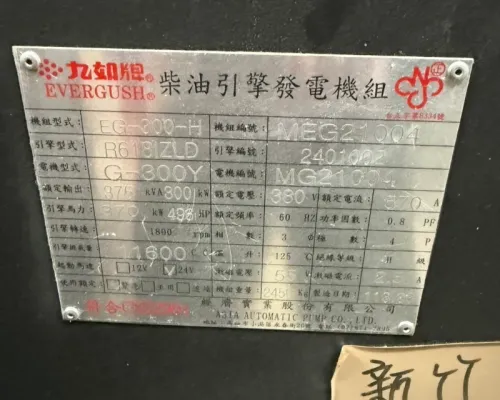 九如牌® EVERGUSH® 柴油引擎發電機組
機組型式: EG-300-H 機組編號: MEG21004
引擎型式: R6181ZLD 引擎編號: 2401002
電機型式: G-300Y 電機編號: MG21004
額定輸出: 375 kVA 300 kW 額定電壓: 380 V 額定電流: 570 A
引擎馬力: 370 kW 496 HP 額定頻率: 60 HZ 功率因數: 0.8 PF
引擎轉速: 1800 rpm 相數: 3 極數: 4 P
1600 C 溫升: 125 ℃ 絕緣等級: H 級
起動馬達: 12V 24V 激磁電壓: 激磁電流:
使用額定: 緊急 常用 連續 機組重量: kg 製造日期:
經濟實業股份有限公司
ASIA AUTOMATIC PUMP CO., LTD.
新竹